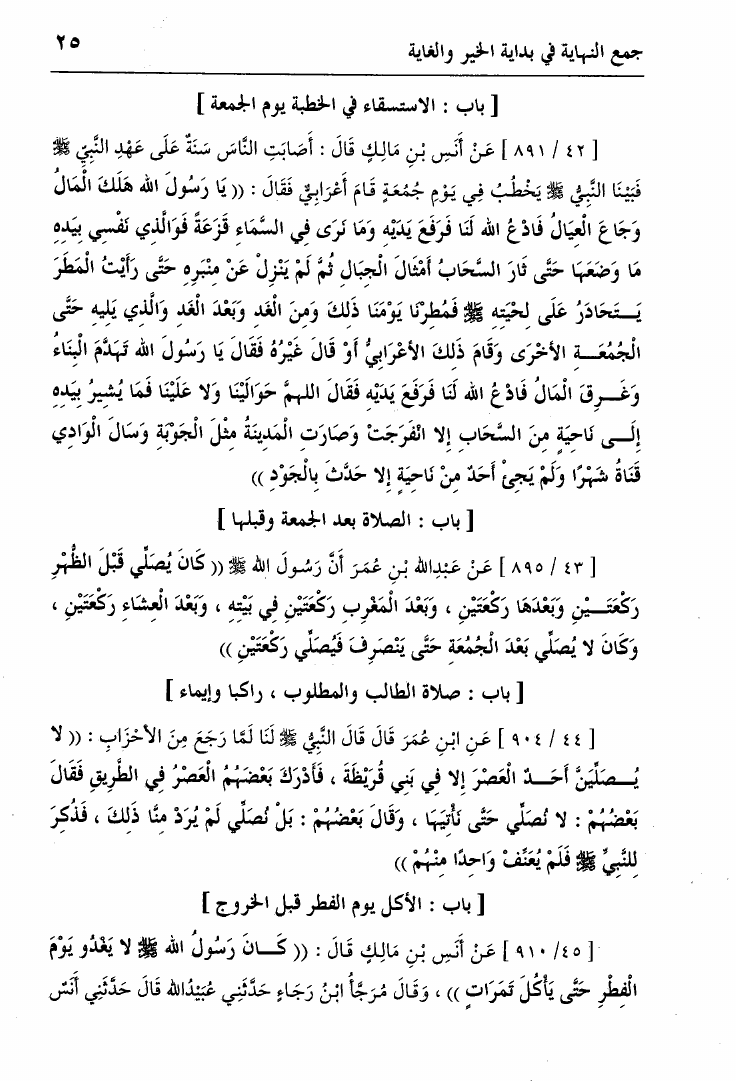 جمع النهاية في بداية الخير والغاية ٢٥
[ باب : الاستسقاء في الخطبة يوم الجمعة ]
[ ٤٢ / ٨٩١ ] عَنْ أَنَسِ بْنِ مَالِكٍ قَالَ : أَصَابَتِ النَّاسَ سَنَةٌ عَلَى عَهْدِ النَّبِيِّ ﷺ
فَبَيْنَا النَّبِيُّ ﷺ يَخْطُبُ فِي يَوْمِ جُمُعَةٍ قَامَ أَعْرَابِيٌّ فَقَالَ : (( يَا رَسُولَ الله هَلَكَ الْمَالُ
وَجَاعَ الْعِيَالُ فَادْعُ الله لَنَا فَرَفَعَ يَدَيْهِ وَمَا نَرَى فِي السَّمَاءِ قَزَعَةً فَوَالَّذِي نَفْسِي بِيَدِهِ
مَا وَضَعَهَا حَتَّى ثَارَ السَّحَابُ أَمْثَالَ الْجِبَالِ ثُمَّ لَمْ يَنْزِلْ عَنْ مِنْبَرِهِ حَتَّى رَأَيْتُ الْمَطَرَ
يَـتَحَادَرُ عَلَى لِحْيَتِهِ ﷺ فَمُطِرْنَا يَوْمَنَا ذَلِكَ وَمِنَ الْغَدِ وَبَعْدَ الْغَدِ وَالَّذِي يَلِيهِ حَتَّى
الْجُمُعَـةِ الأُخْرَى وَقَامَ ذَلِكَ الأَعْرَابِيُّ أَوْ قَالَ غَيْرُهُ فَقَالَ يَا رَسُولَ الله تَهَدَّمَ الْبِنَاءُ
وَغَـرِقَ الْمَالُ فَادْعُ الله لَنَا فَرَفَعَ يَدَيْهِ فَقَالَ اللهمَّ حَوَالَيْنَا وَلا عَلَيْنَا فَمَا يُشِيرُ بِيَدِهِ
إِلَـى نَاحِيَةٍ مِنَ السَّحَابِ إِلا انْفَرَجَتْ وَصَارَتِ الْمَدِينَةُ مِثْلَ الْجَوْبَةِ وَسَالَ الْوَادِي
قَنَاةُ شَهْرًا وَلَمْ يَجِئْ أَحَدٌ مِنْ نَاحِيَةٍ إِلا حَدَّثَ بِالْجَوْدِ ))
[ باب : الصلاة بعد الجمعة وقبلها ]
[ ٤٣ / ٨٩٥ ] عَنْ عَبْدِالله بْنِ عُمَرَ أَنَّ رَسُولَ الله ﷺ (( كَانَ يُصَلِّي قَبْلَ الظُّهْرِ
رَكْعَتَـيْنِ وَبَعْدَهَا رَكْعَتَيْنِ ، وَبَعْدَ الْمَغْرِبِ رَكْعَتَيْنِ فِي بَيْتِهِ ، وَبَعْدَ الْعِشَاءِ رَكْعَتَيْنِ ،
وَكَانَ لا يُصَلِّي بَعْدَ الْجُمُعَةِ حَتَّى يَنْصَرِفَ فَيُصَلِّي رَكْعَتَيْنِ ))
[ باب : صلاة الطالب والمطلوب ، راكبا وإيماء ]
[ ٤٤ / ٩٠٤ ] عَنِ ابْنِ عُمَرَ قَالَ قَالَ النَّبِيُّ ﷺ لَنَا لَمَّا رَجَعَ مِنَ الأَحْزَابِ : (( لا
يُـصَلِّيَنَّ أَحَـدٌ الْعَصْرَ إِلا فِي بَنِي قُرَيْظَةَ ، فَأَدْرَكَ بَعْضَهُمُ الْعَصْرُ فِي الطَّرِيقِ فَقَالَ
بَعْضُهُمْ : لا نُصَلِّي حَتَّى نَأْتِيَهَا ، وَقَالَ بَعْضُهُمْ : بَلْ نُصَلِّي لَمْ يُرَدْ مِنَّا ذَلِكَ ، فَذُكِرَ
لِلنَّبِيِّ ﷺ فَلَمْ يُعَنِّفْ وَاحِدًا مِنْهُمْ ))
[ باب : الأكل يوم الفطر قبل الخروج ]
[ ٤٥ / ٩١٠ ] عَنْ أَنَسِ بْنِ مَالِكٍ قَالَ : (( كَـانَ رَسُولُ الله ﷺ لا يَغْدُو يَوْمَ
الْفِطْرِ حَتَّى يَأْكُلَ تَمَرَاتٍ )) ، وَقَالَ مُرَجَّأُ ابْنُ رَجَاءٍ حَدَّثَنِي عُبَيْدُالله قَالَ حَدَّثَنِي أَنَسٌ